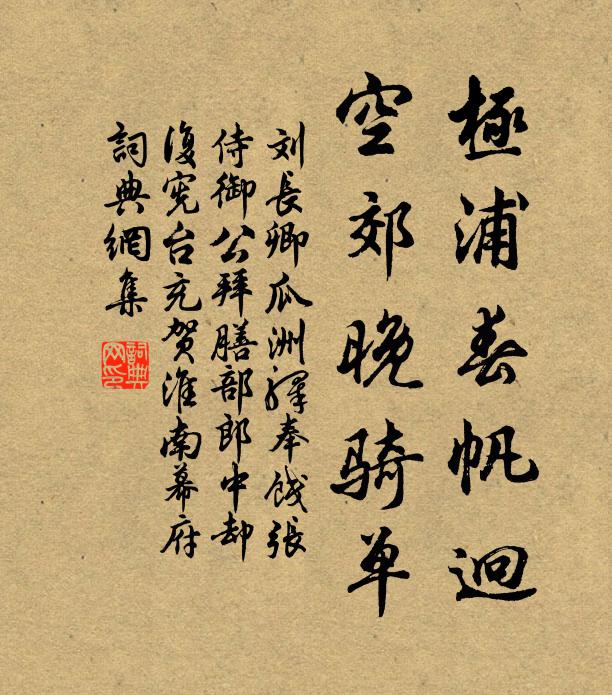 極浦春帆迥
空郊晚騎单
刘長卿瓜洲驛奉餞張
侍御公拜膳部郎中却
復宪台充賀淮南幕府
詞典網集
詞典
网印